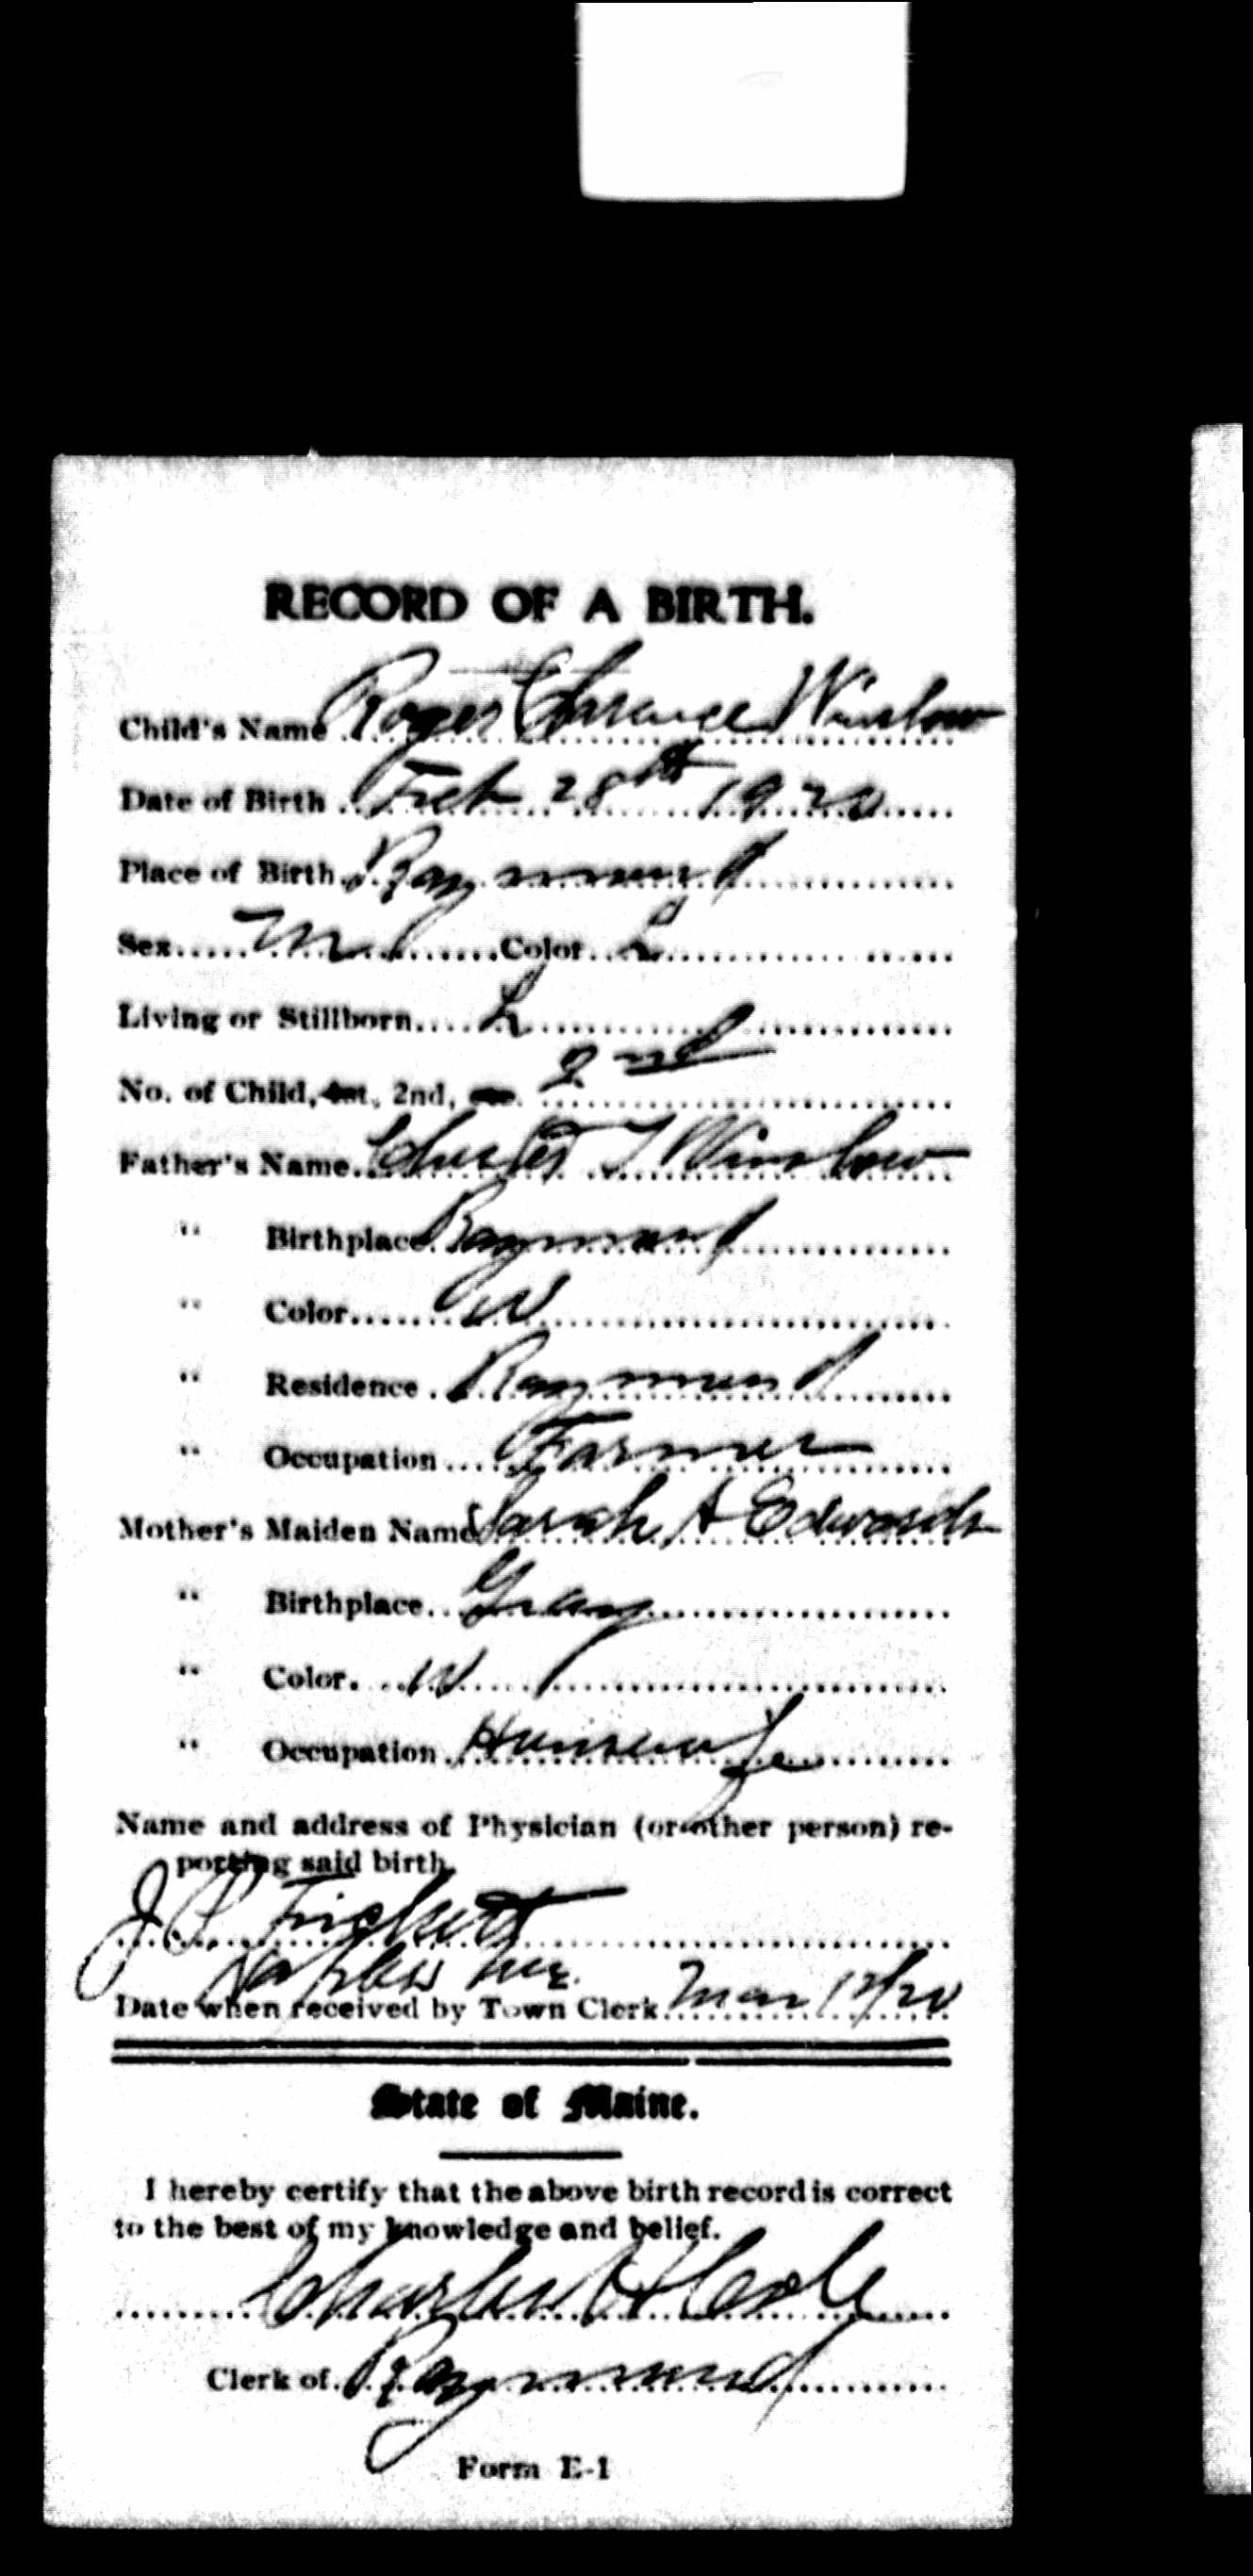 RECORD OF A BIRTH.
Child's Name Roger Clarence Winslow
Date of Birth Feb 28th 1920
Place of Birth Raymond
Sex M Color
Living or Stillborn L
No. of Child, 1st, 2nd, etc. 2nd
Father's Name Chester T Winslow
" Birthplace Raymond
" Color W
" Residence Raymond
" Occupation Farmer
Mother's Maiden Name Sarah A Edwards
" Birthplace Gray
" Color W
" Occupation Housewife
Name and address of Physician (or other person) re-
porting said birth.
J. Fickett
Naples Me.
Date when received by Town Clerk Mar 12/20
State of Maine.
I hereby certify that the above birth record is correct
to the best of my knowledge and belief.
Charles H Cole
Clerk of Raymond
Form E-1